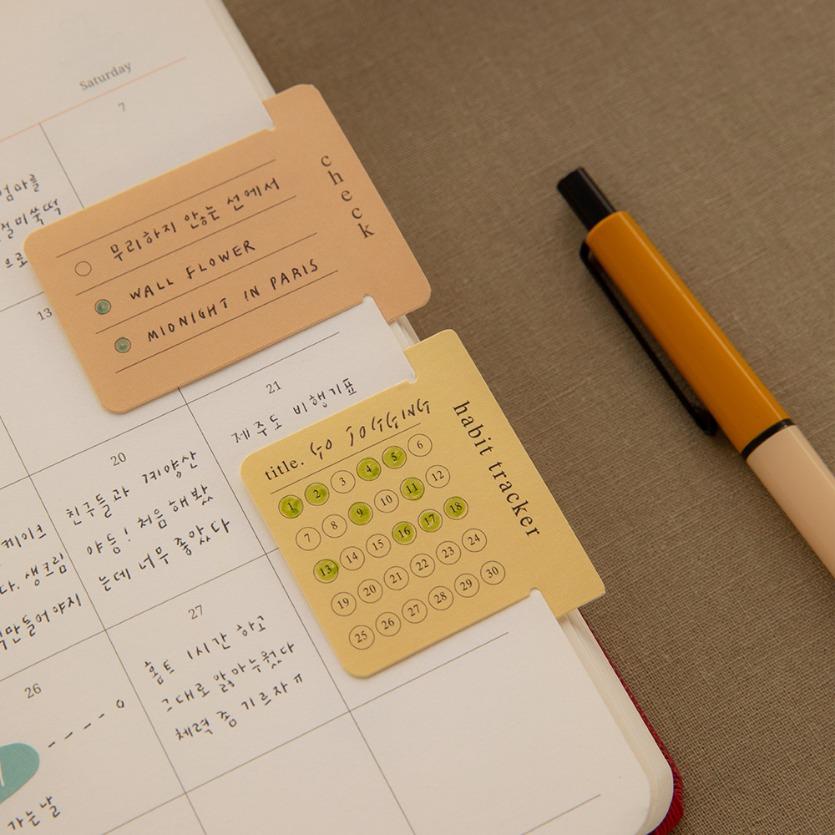 Saturday
7
엄마를
절미쑥떡
으로
check
무리하지 않는 선에서
WALL FLOWER
MIDNIGHT IN PARIS
13
21
제주도 비행기표
habit tracker
title. GO JOGGING
1 2 3 4 5 6
7 8 9 10 11 12
13 14 15 16 17 18
19 20 21 22 23 24
25 26 27 28 29 30
20
친구들과 계양산
야등! 처음 해봤
는데 너무 좋았다
케이크
다. 생크림
만들어야지
27
홈트 1시간 하고
그대로 앓아누웠다
체력 좀 기르자 ㅠ
26
가는날